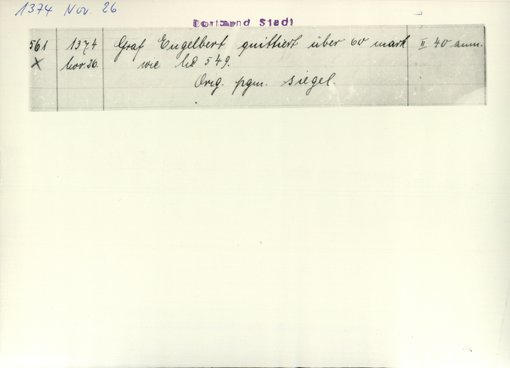 1374 Nov. 26
Dortmund Stadt
561 1374 Graf Engelbert quittiert über 60 mark II 40 anm.
X nov. 26. wie N° 549.
Orig. pgm. Siegel.